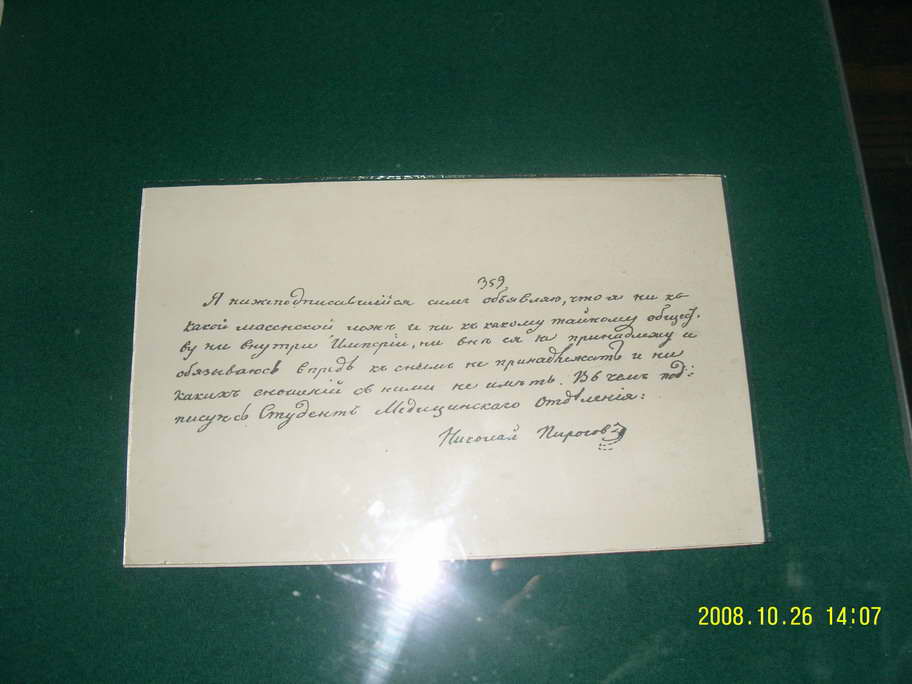 359
Я нижеподписавшійся симъ объявляю, что я ни къ
какой масонской ложѣ и ни къ какому тайному общест.
ву ни внутри Имперіи, ни внѣ ея не принадлежу и
обязываюсь впредь къ онымъ не принадлежать и ни
какихъ сношеній съ ними не имѣть. Въ чемъ под:
писуюсь Студентъ Медицинскаго Отдѣленія:
Николай Пирогов
2008.10.26 14:07